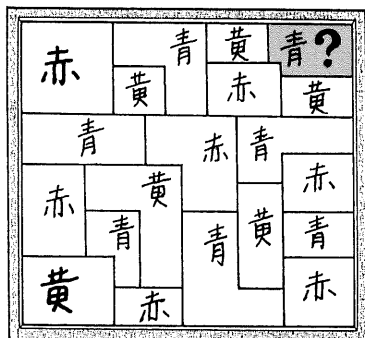 赤 青 黄 青?
黄 赤 黄
青 赤 青
赤 黄 赤
青 青 黄 青
黄 赤 赤